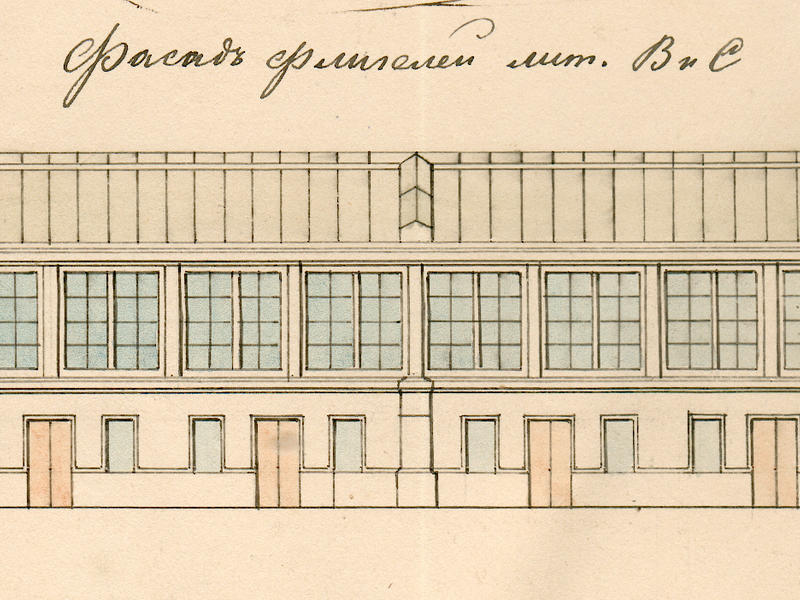 Фасадъ флигелей лит. В и С